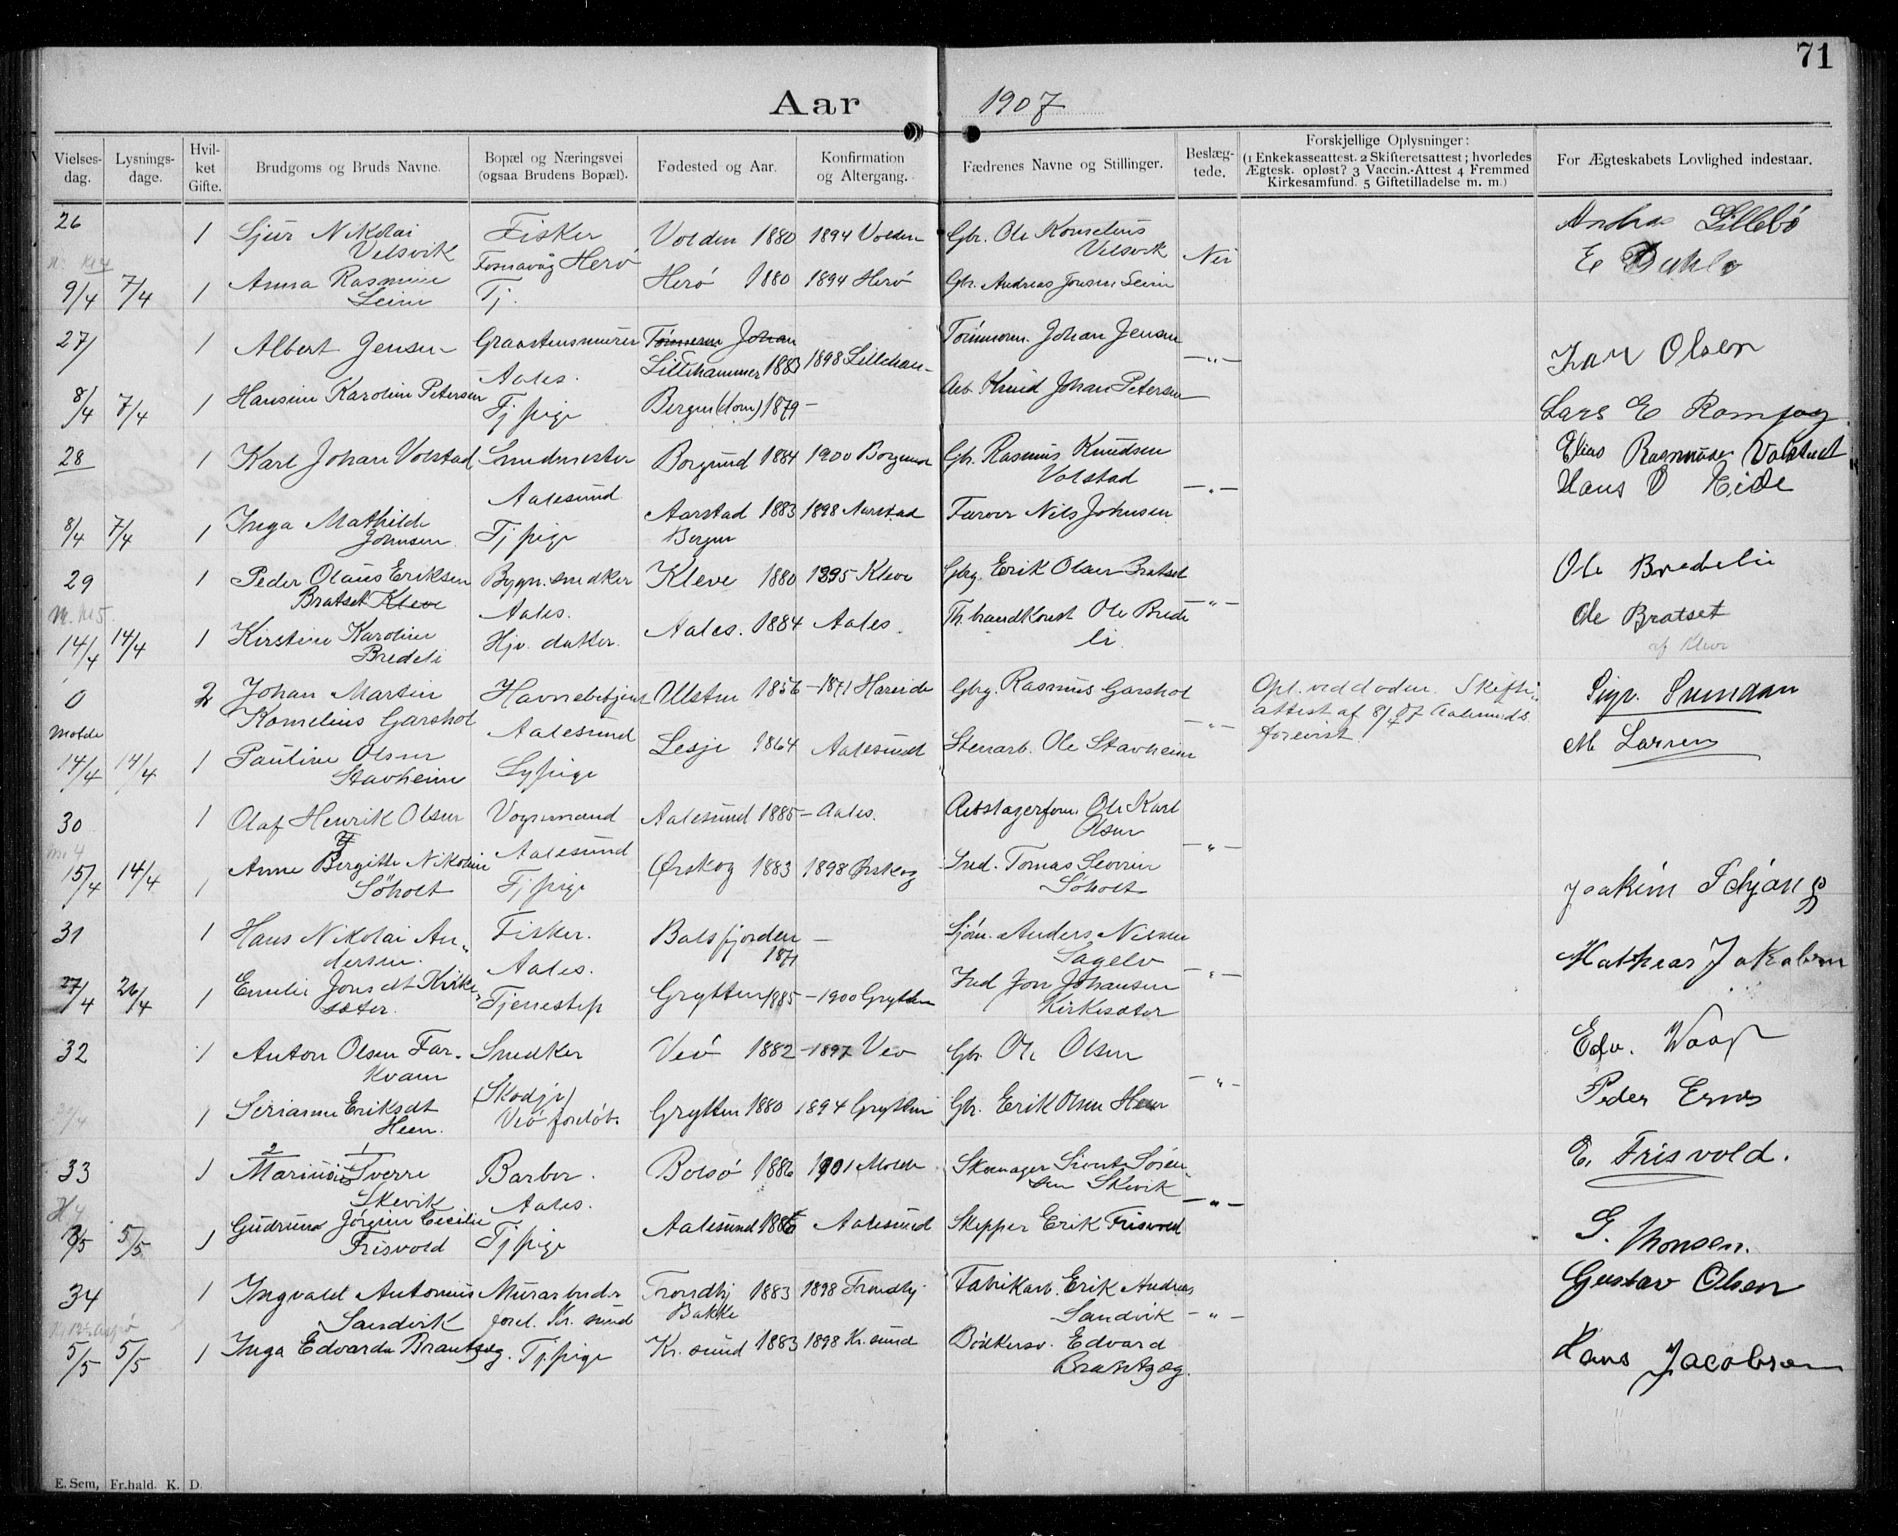 71
Aar 1907
Vielses-dag. Lysnings-dage. Hvil-ket Gifte. Brudgoms og Bruds Navne. Bopæl og Næringsvei (ogsaa Brudens Bopæl). Fødested og Aar. Konfirmation og Altergang. Fædrenes Navne og Stillinger. Beslæg-tede. Forskjellige Oplysninger: (1 Enkekasseattest. 2 Skifteretsattest; hvorledes Ægtesk. opløst? 3 Vaccin.-Attest 4 Fremmed Kirkesamfund. 5 Giftetilladelse m. m.) For Ægteskabets Lovlighed indestaar.
26 1 Sjur Nikolai Fisker Volden 1880 1894 Volden Gbr. Ole Kornelius Lillebø
Velsvik Fosnavåg Herö Velsvik Nei E
9/4 7/4 1 Anna Rasmine Tj. Herö 1880 1894 Herö Gbr. Andreas Jonsen Leine
Leine
27 1 Albert Jensen Graastensmurer Tömmerm Johan Tömmerm. Johan Jensen
Aales. Lillehammer 1883 1898 Lilleham- —„— Olsen
8/4 7/4 1 Hansine Karoline Petersen Tj pige Bergen (dom) 1879 — Arb. Knud Johan Petersen Lars E
28 1 Karl Johan Volstad Smedmester Borgund 1884 1900 Borgund Gbr. Rasmus Knudsen Elias Rasmusen Volstad
Aalesund Volstad —„— Hans O Eide
8/4 7/4 1 Inga Mathilde Tj pige Aarstad 1883 1898 Aarstad Farver Nils Johnsen
Johnsen Bergen
29 1 Peder Olaus Eriksen Bygn. snedker Kleve 1880 1895 Kleve Gbrg. Erik Olsen Bratset Ole Bredeli
Bratset Kleve Aales. —„— Ole Bratset
14/4 14/4 1 Kirstine Karoline Hjv. datter. Aales. 1884 Aales. Ole Brede
Bredeli li af Kleve
0 2 Johan Martin Havnebetjent Ulsten 1856 — 1871 Hareide Gbrg. Rasmus Garshol Opl. ved döden. Skifte-
Kornelius Garshol Aalesund —„— attest af 8/4 07 Aalesunds
Molde forevist.
14/4 14/4 1 Pauline Olsen Sypige Lesje 1864 Aalesund Stenarb. Ole Stavheim M Larsen
Stavheim
30 1 Olaf Henrik Olsen Vognmand Aalesund 1885 — Aales. Ole Karl
Aalesund Olsen —„—
15/4 14/4 1 Anne Bergitte Nikoline Tj pige Ørskog 1883 1898 Ørskog Sned. Tomas Severin
Söholt Söholt Joakim Schjong
31 1 Hans Nikolai An- Fisker. Balsfjorden — Anders Nilsen
dersen. Aales. 1871 Sagelv —„— Mathias Jakobsen
27/4 26/4 1 Emilie Jonsdt Kirke- Tjenestep Grytten 1885 — 1900 Grytten Ind Jon Johansen
sæter. Kirkesæter
32 1 Anton Olsen Far- Snedker Veö 1882 — 1897 Veö Gbr. Ole Olsen Edv.
kvam (Skodje) —„— Peder
1 Serianne Eriksdt Veö foreløb. Grytten 1880 1894 Grytten Gbr. Erik Olsen Heen
Heen.
33 1 Marinus Sverre Barber. Bolsö 1886 1901 Molde Skomager Sivert Sören- E. Frisvold.
Skevik Aales. sen Skevik —„—
5/5 5/5 1 Gudrund Jörgine Cecilie Tj pige Aalesund 1886 Aalesund Skipper Erik Frisvold G. Monsen.
Frisvold
34 1 Ingvald Antonius Murarbeider Trondhj 1883 1898 Trondhj Fabrikarb. Erik Andreas Gustav Olsen
Sandvik forel. Kr. sund Bakke Sandvik —„—
5/5 5/5 1 Inga Edvarda Brantzæg. Tj. pige Kr. sund 1883 1898 Kr. sund Bödkersv. Edvard Hans Jacobsen
Brantzæg.
E. Sem, Fr.hald. K. D.